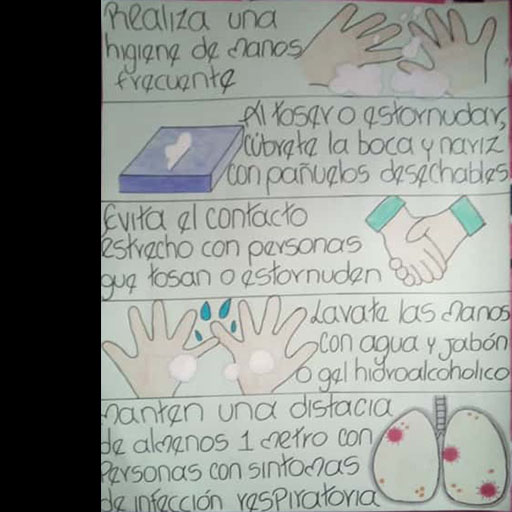 Realiza una
higiene de manos
frecuente
Al toser o estornudar,
cúbrete la boca y nariz
con pañuelos desechables
Evita el contacto
estrecho con personas
que tosan o estornuden
Lavate las manos
con agua y jabón
o gel hidroalcoholico
Manten una distacia
de almenos 1 metro con
Personas con sintomas
de infección respiratoria